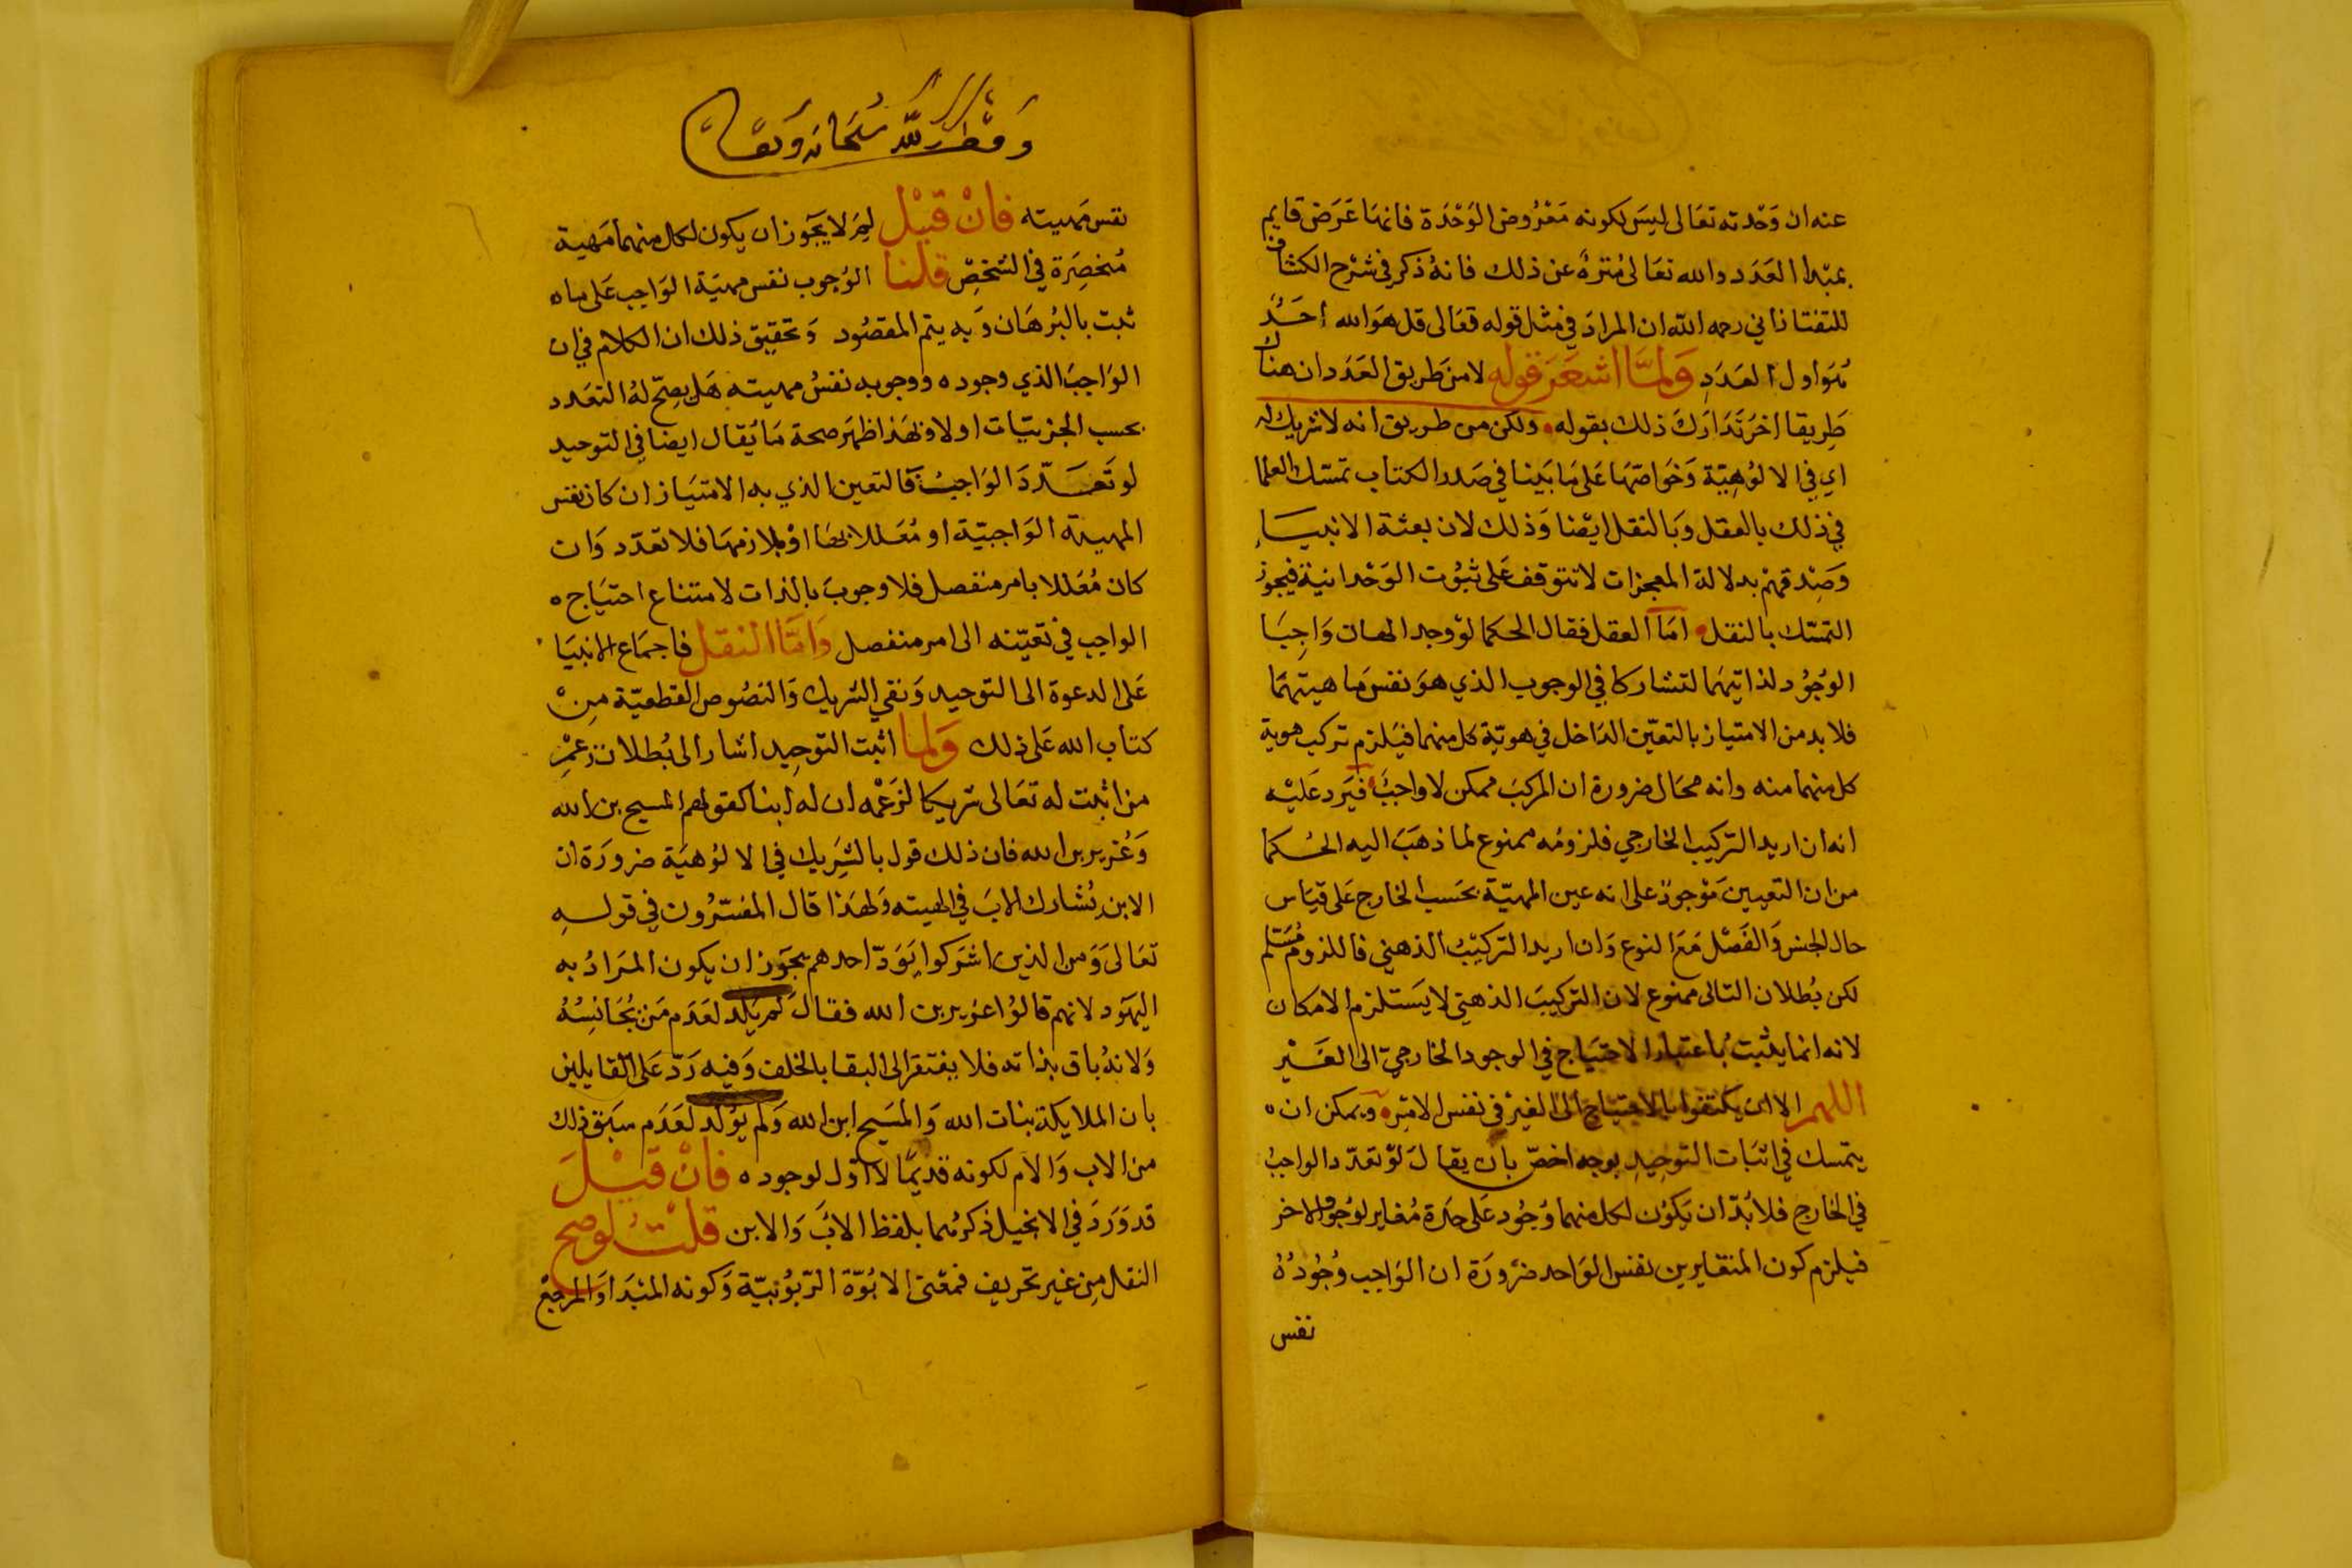 عنه ان وَحْدته تعَالى ليسَ لكونه مَعْرُوض الوَحْدَة فانهَا عَرَض قايم
بمبدا العَدَد والله تعَالى مُنزهٌ عن ذلك فانهُ ذكر في شرْح الكشاف
للتفتازاني رحمه الله ان المرادَ في مثل قوله تعَالى قل هوَ الله أحَدٌ
هُوَ اول العَدَدِ وَلمَّا اشعَرَ قوله لا من طَريق العَدَد ان هناك
طَريقا اخرُ تَدَارَكَ ذلك بقوله ولكن من طريق انه لا شريك له
اي في الالوُهِيّة وَخَواصّهَا عَلى مَا بَينا في صَدر الكتاب تمسّك العلما
في ذلك بالعقل وَبالنقل ايْضا وَذلك لان بعثة الانبيَاء
وَصِدقهمْ بدلالة المعجزات لا تتوقف عَلى ثبوُت الوَحْدانية فيجوز
التمسّك بالنقل امّا العقل فقال الحكما لوْ وجد الهان وَاجِبَا
الوُجوُد لذاتيهَما لتشاركا في الوجوب الذي هوَ نفسَ مَاهيتهمَا
فلا بد من الامتياز بالتعيّن الدَاخل في هويّة كل منهما فيَلزم تركب هوية
كل منهما منه وانه محَال ضرورة ان المركبَ ممكن لا واجبٌ فيَرد عَليْه
انه ان اريد التركيب الخارجي فلزومُه ممنوع لما ذهَبَ اليه الحُكما
من ان التعيين مَوْجودٌ على انه عين المهيّة بحَسب الخارج عَلى قيَاس
حال الجنس وَالفَصْل مَعَ النوع وَان اريد التركيْبُ الذهني فاللزوم مُسَلم
لكن بُطلان التالى ممنوع لان التركيبَ الذهني لا يَستلزم الامكان
لانه انما يثبتُ باعتبار الاحتيَاج في الوجود الخارجيّ الى الغَيْر
اللهم الا ان يكتفوا بالاحتياج الى الغيرْ فى نفس الامْر ويمكن ان ه
يتمسك في اثبَات التوحِيدِ بوجه اخصّ بان يقالَ لوْ تعدّد الواجبُ
في الخارج فلا بُدّ ان يَكوُن لكل منهما وُجُود عَلى حدَة مُغاير لوُجود الاخر
فيلزم كون المتغايرين نفس الوَاحد ضرُورَة ان الوَاجب وُجُودُهُ
نفس
وَقْف لله سُبْحَانه وَتعَالى
نفس مَهيته فانْ قيْل لِمَ لا يجَوز ان يكون لكل منهما مَهية
مُنحصِرَة في الشخصّ قلنا الوُجوب نفس مهيَة الوَاجب عَلى ما ه
ثبت بالبُرهَان وَبه يتم المقصُود وَتحقيق ذلك ان الكلام في ان
الوَاجبَ الذي وجوده ووجوبه نفسُ مهيته هَل يصِحّ لهُ التعَدد
بحسب الجزئيّات اولا وبهَذا ظهَر صحة مَا يُقال ايضا في التوحيد
لو تَعَدّدَ الوَاجبُ فالتعين الذي به الامتيَاز ان كان نفس
المهيته الوَاجبيّة او مُعَللا بهَا اوْ بلازمهَا فلا تعدّد وَان
كان مُعَللا بامر منفصل فلا وجوبَ بالذات لامتناع احتيَاج ه
الواجب في تعيّنه الى امر منفصل وَامّا النقل فاجمَاع الانبيَا
عَلى الدعوة الى التوحيد وَنفي الشريك وَالنصُوص القطعيّة مِنْ
كتاب الله عَلى ذلك وَلما اثبت التوحِيد اشار الى بُطلان زعْمِ
من اثبت له تعَالى شريكا لزَعْمه ان له ابنا كقولهم المسيح بن الله
وَعُزير بن الله فان ذلك قول بالشَرِيك في الالوُهيَة ضرورَة ان
الابن يُشارك الابَ في الهيته وَلهَذا قال المفسّرُون في قولهِ
تعَالى وَمن الذين اشرَكوا يَوَدّ احدهم يجوَز ان يكون المَرَادُ به
اليهَود لانهم قالوُا عزير بن الله فقالَ لم يَلد لعَدَم مَنْ يُجَانِسُهُ
وَلانهُ باق بذاته فلا يفتقر الى البقا بالخلف وَفيه رَدّ عَلى القايلين
بان الملايكة بنات الله وَالمسَيح ابن الله وَلم يوُلد لعَدَم سَبق ذلك
من الاب وَالام لكونه قديمًا لا اوّل لوجوده فانْ قيْلَ
قد وَرَدَ في الانجيل ذكرهُما بلفظ الابَ وَالابن قلتُ لوصح
النقل مِن غير تحريف فمعْنى الابُوّة الرّبوُبيّة وَكونه المبْدَا وَالمرجعْ